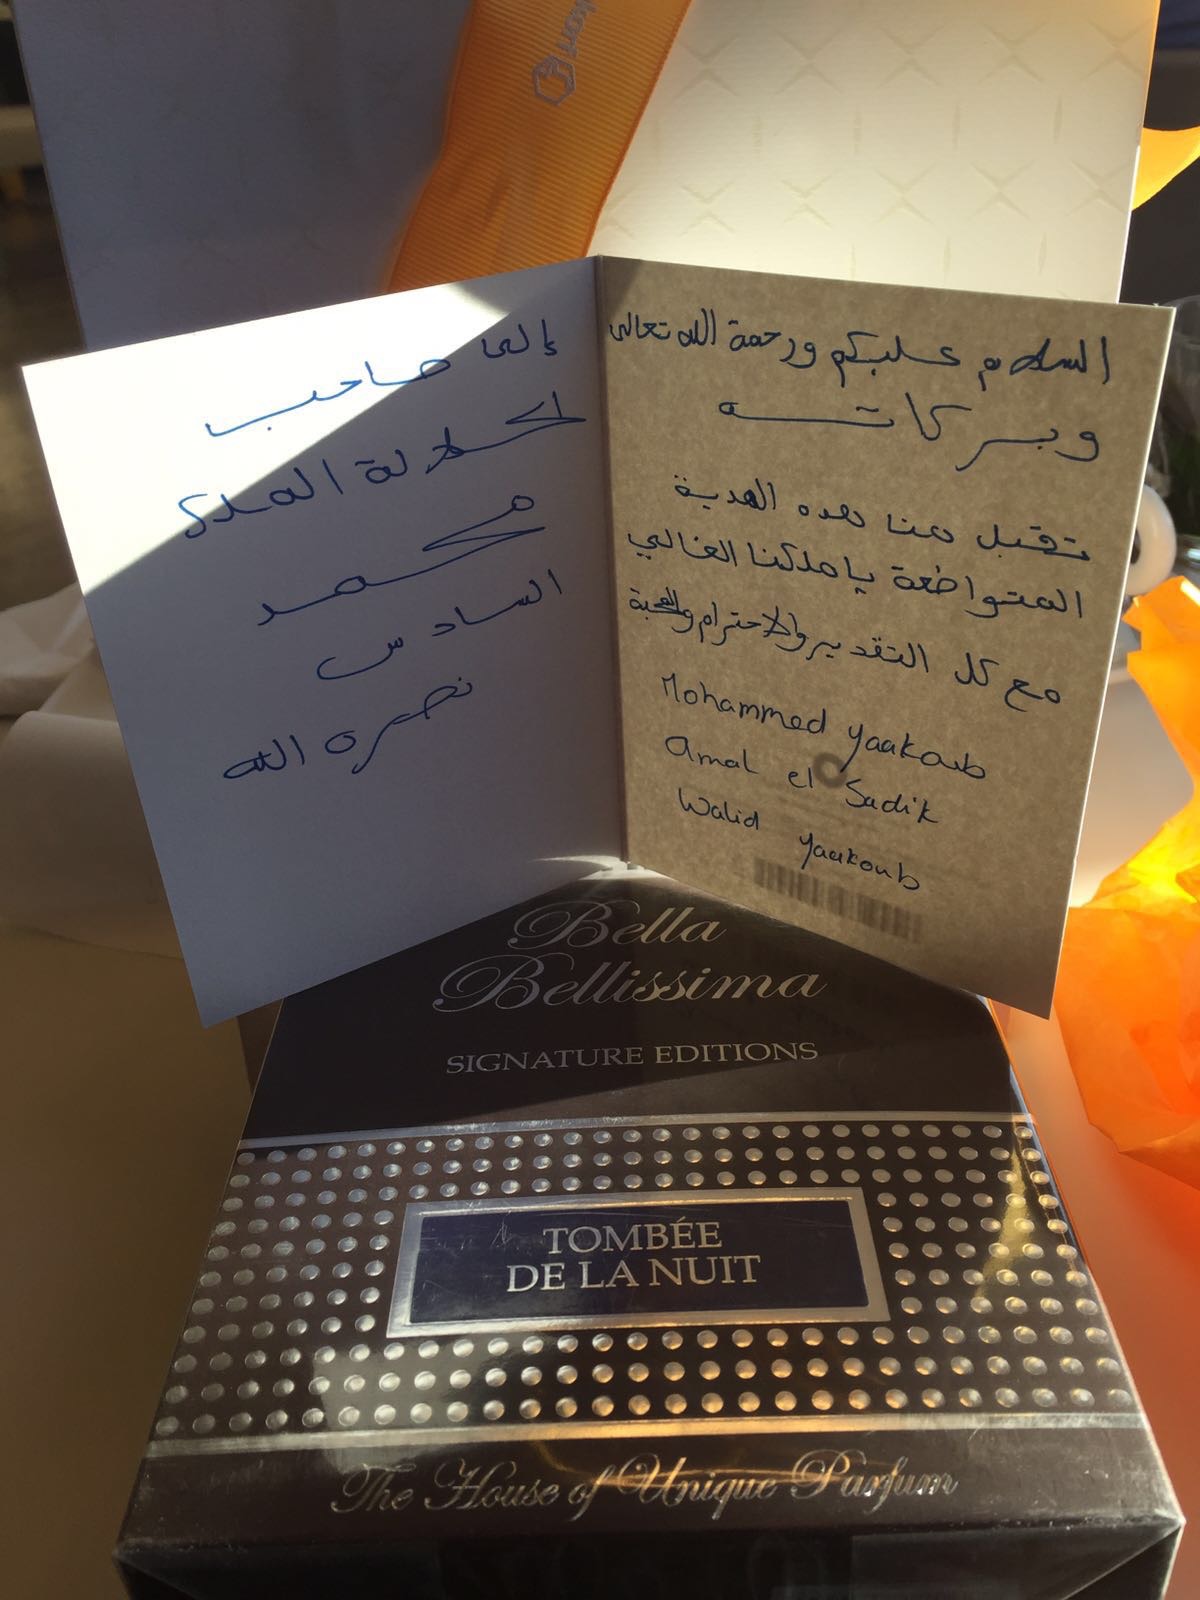 إلى صاحب
الجلالة الملك
محمد
السادس
نصره الله
السلام عليكم ورحمة الله تعالى
وبركاته
تقبل منا هذه الهدية
المتواضعة يا ملكنا الغالي
مع كل التقدير والاحترام والمحبة
Mohammed yaakoub
Amal el Sadik
Walid yaakoub
Bella
Bellissima
SIGNATURE EDITIONS
TOMBÉE
DE LA NUIT
The House of Unique Parfum